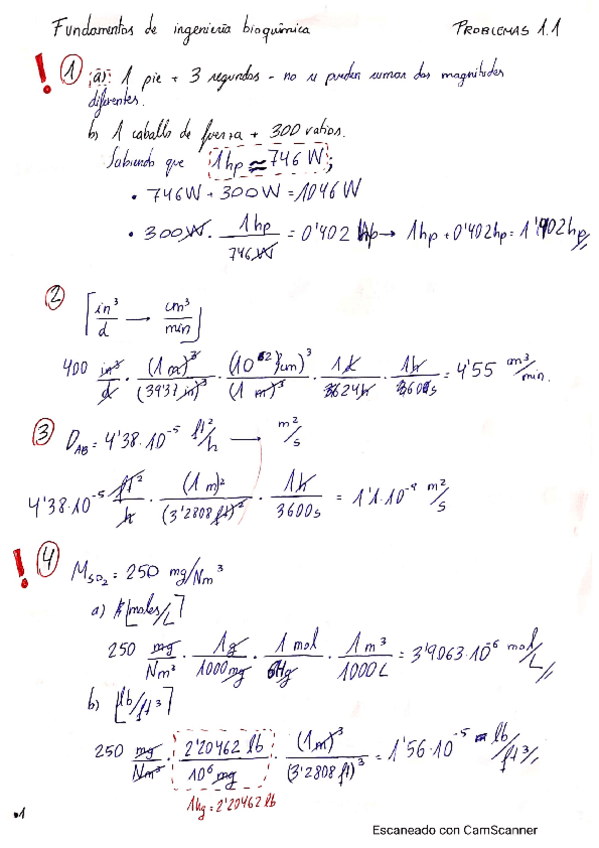 Fundamentos de ingeniería bioquímica PROBLEMAS 1.1
! 1 a) 1 pie + 3 segundos - no se pueden sumar dos magnitudes
diferentes.
b) 1 caballo de fuerza + 300 vatios.
Sabiendo que 1hp ≈ 746 W;
• 746W + 300W = 1046 W
• 300W · 1hp / 746W = 0'402 hp → 1hp + 0'402hp = 1'402hp
2
[in³/d → cm³/min]
400 in³/d · (1 m)³/(39'37 in)³ · (10² cm)³/(1 m)³ · 1d/24h · 1h/60 = 4'55 cm³/min.
3 D_AB = 4'38·10⁻⁵ ft²/h → m²/s
4'38·10⁻⁵ ft²/h · (1 m)²/(3'2808 ft)² · 1h/3600s = 1'1·10⁻⁹ m²/s
! 4 M_SO₂ = 250 mg/Nm³
a) [moles/L]
250 mg/Nm³ · 1g/1000mg · 1 mol/64g · 1 m³/1000L = 3'9063·10⁻⁶ mol/L
b) [lb/ft³]
250 mg/Nm³ · 2'20462 lb/10⁶ mg · (1m)³/(3'2808 ft)³ = 1'56·10⁻⁵ lb/ft³
1kg = 2'20462 lb
•1
Escaneado con CamScanner